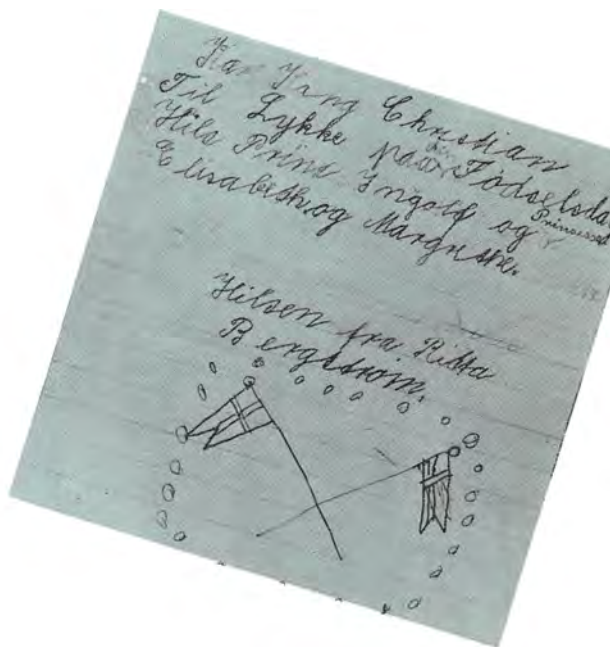 Kær Kong Christian
Til Lykke paa din Fødselsda
Hils Prins Ingolf og Prinsesse
Elisabeth og Margrethe.
Hilsen fra Ritta
Bergstrøm.